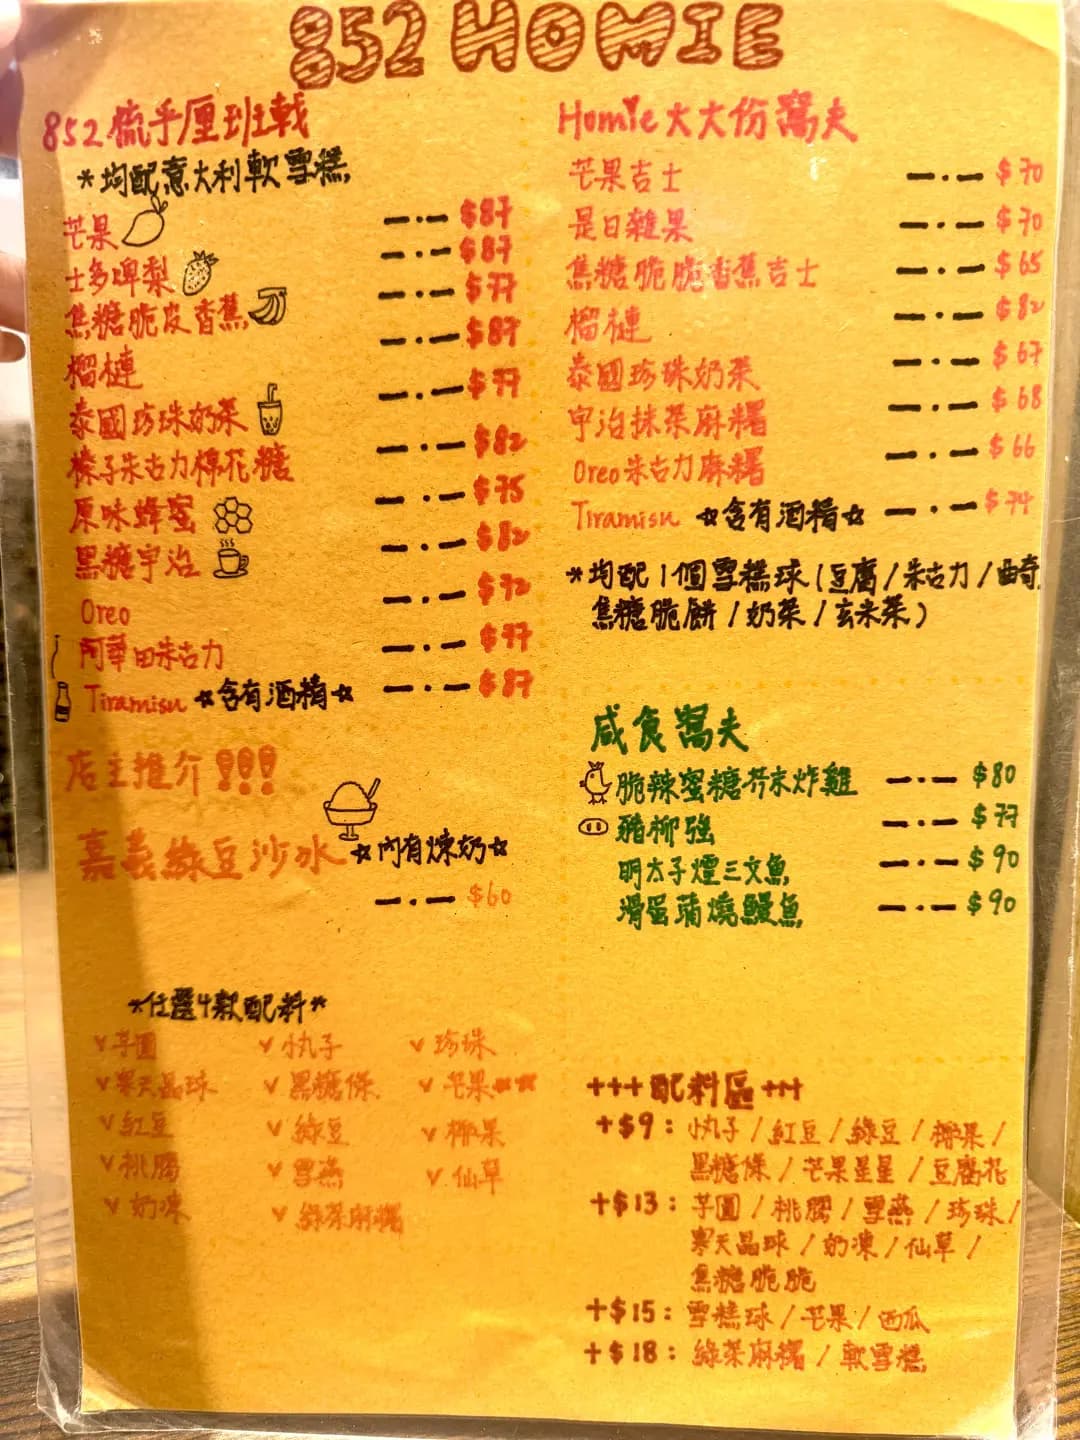 852 HOMIE
852 梳乎厘班戟
*均配意大利軟雪糕
芒果 —·— $87
士多啤梨 —·— $87
焦糖脆皮香蕉 —·— $77
榴槤 —·— $87
泰國珍珠奶茶 —·— $77
榛子朱古力棉花糖 —·— $82
原味蜂蜜 —·— $75
黑糖宇治 —·— $82
Oreo —·— $72
阿華田朱古力 —·— $77
Tiramisu ☆含有酒精☆ —·— $87
店主推介!!!
嘉義綠豆沙冰 ☆內有煉奶☆
—·— $60
*任選4款配料*
v 芋圓 v 小丸子 v 珍珠
v 寒天晶球 v 黑糖條 v 芒果
v 紅豆 v 綠豆 v 椰果
v 桃膠 v 雪燕 v 仙草
v 奶凍 v 綠茶麻糬
Homie大大份窩夫
芒果吉士 —·— $70
是日雜果 —·— $70
焦糖脆脆香蕉吉士 —·— $65
榴槤 —·— $82
泰國珍珠奶茶 —·— $67
宇治抹茶麻糬 —·— $68
Oreo朱古力麻糬 —·— $66
Tiramisu ☆含有酒精☆ —·— $74
*均配1個雪糕球(豆腐/朱古力/曲奇
焦糖脆餅/奶茶/玄米茶)
咸食窩夫
脆辣蜜糖芥末炸雞 —·— $80
豬柳強 —·— $77
明太子煙三文魚 —·— $90
滑蛋蒲燒鰻魚 —·— $90
+++配料區+++
+$9: 小丸子/紅豆/綠豆/椰果/
黑糖條/芒果星星/豆腐花
+$13: 芋圓/桃膠/雪燕/珍珠/
寒天晶球/奶凍/仙草/
焦糖脆脆
+$15: 雪糕球/芒果/西瓜
+$18: 綠茶麻糬/軟雪糕